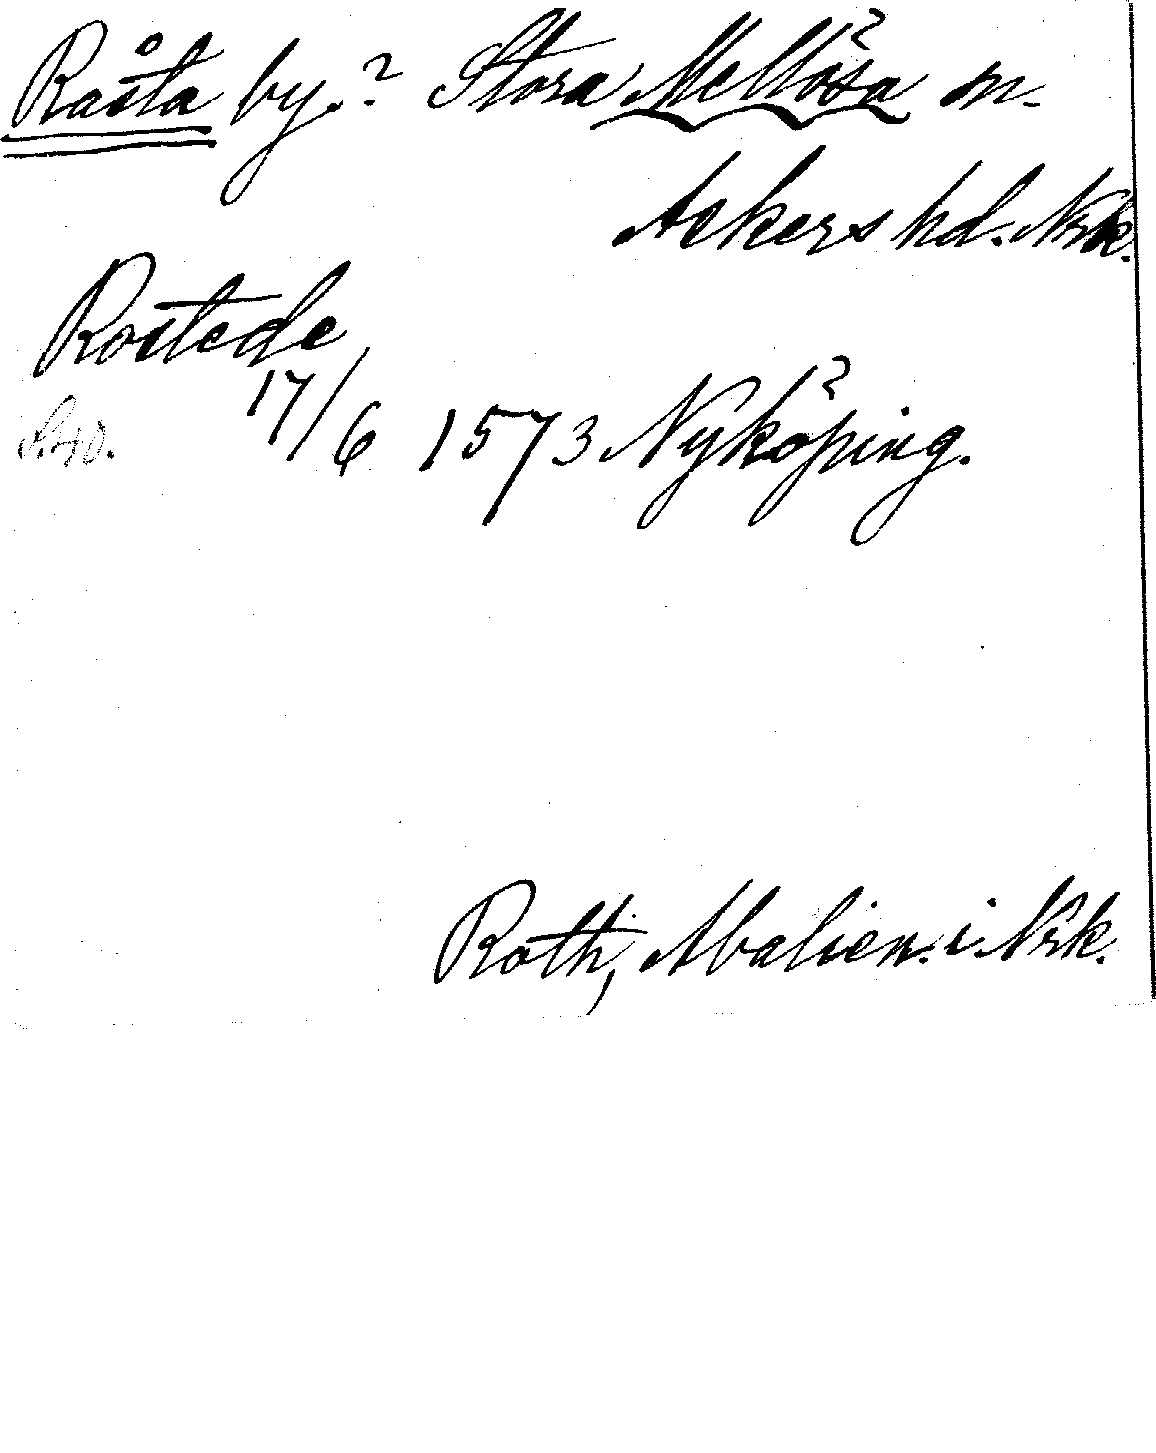 Råsta by.? Stora Mellösa sn.
Askers hd. Nrk.
Rostede
17/6 1573 Nyköping.
S. 40.
Roth, Abalien. i Nrk.